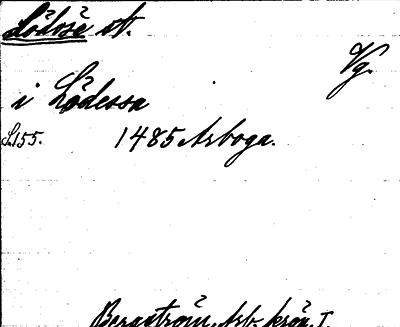 Lödöse st.
Vg.
i Lödessa
S.155. 1485 Arboga.
Bergström, Arb. krön. I.